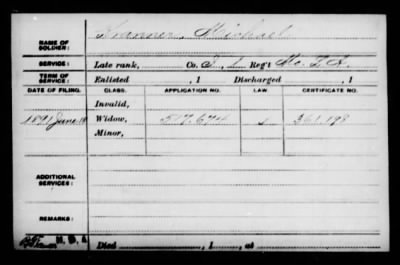 NAME OF SOLDIER: Kranner, Michael
SERVICE: Late rank, Co. I, L Reg't Mo. L. A.
TERM OF SERVICE: Enlisted , 1 Discharged , 1
DATE OF FILING. CLASS. APPLICATION NO. LAW. CERTIFICATE NO.
Invalid,
1891 June 18 Widow, 517.674
Minor,
ADDITIONAL SERVICES:
REMARKS:
Died , 1 , at